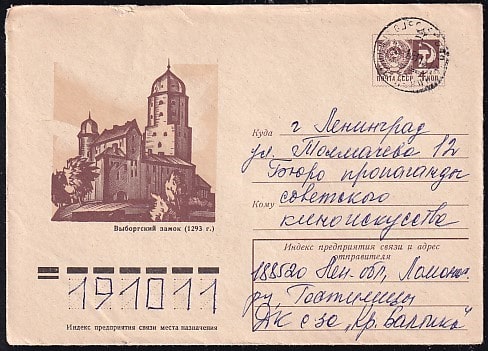 ПОЧТА СССР
КОП
Выборгский замок (1293 г.)
Куда
г Ленинград
ул. Толмачева 12
Бюро пропаганды
советского
Кому
киноискусства
Индекс предприятия связи и адрес
отправителя
188520 Лен. обл, Ломонос.
р-у, Гостилицы
ДК с-за „Кр. Балтика"
191011
Индекс предприятия связи места назначения